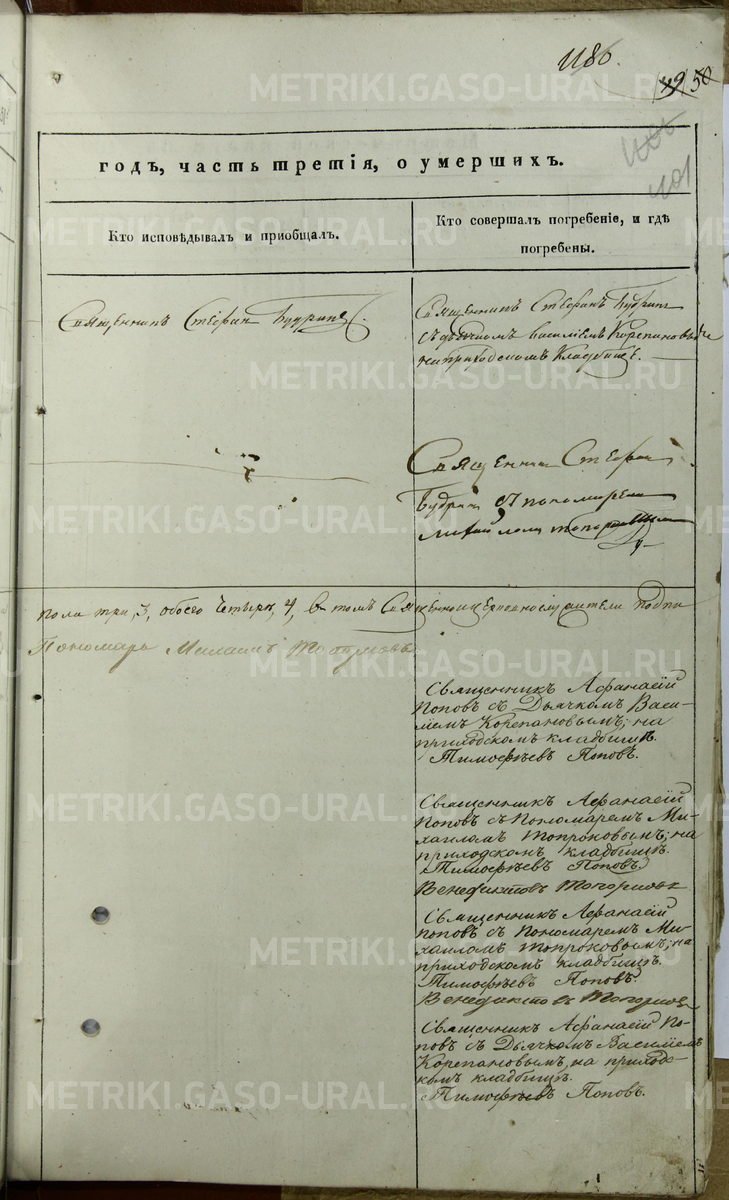 1186.
49 50
1101
годъ, часть третія, о умершихъ.
Кто исповѣдывалъ и пріобщалъ.
Кто совершалъ погребеніе, и гдѣ
погребены.
Священникъ Стефанъ Будринъ.
Священникъ Стефанъ Будринъ
съ дьячкомъ Василіемъ Корепановымъ
на приходскомъ кладбище.
Священникъ Стефанъ
Будринъ съ пономаремъ
Михайломъ
пола три, 3, обоего четыри, 4, в томъ Священноцерковнослужители подпи
Пономарь
Священникъ Афанасій
Поповъ съ Дьячкомъ Васи-
лiемъ Корепановымъ; на
приходскомъ кладбищѣ.
Тимофѣевъ Поповъ.
Священникъ Афанасій
Поповъ съ Пономаремъ Ми-
хаиломъ Топроковымъ; на
приходскомъ кладбищѣ.
Тимофѣевъ Поповъ.
Священникъ Афанасій
Поповъ съ Пономаремъ Ми-
хаиломъ Топроковымъ; на
приходскомъ кладбищѣ.
Тимофѣевъ Поповъ.
Священникъ Афанасій По-
повъ съ Дьячкомъ Василіемъ
Корепановымъ, на приход-
скомъ кладбищѣ.
Тимофѣевъ Поповъ.
METRIKI.GASO-URAL.RU